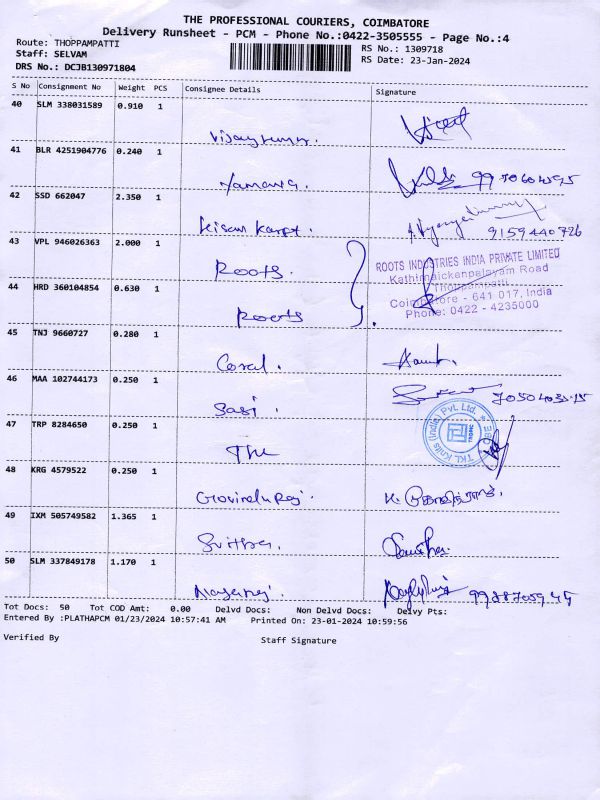 THE PROFESSIONAL COURIERS, COIMBATORE
Delivery Runsheet - PCM - Phone No.:0422-3505555 - Page No.:4
Route: THOPPAMPATTI
Staff: SELVAM
DRS No.: DCJB130971804
RS No.: 1309718
RS Date: 23-Jan-2024
S No Consignment No Weight PCS Consignee Details Signature
40 SLM 338031589 0.910 1
Vijaykumar.
41 BLR 4251904776 0.240 1
Yamuna.
42 SSD 662047 2.350 1
9159440726
43 VPL 946026363 2.000 1
Roots.
ROOTS INDUSTRIES INDIA PRIVATE LIMITED
Kathirnaickenpalayam Road
Thoppampatti
Coimbatore - 641 017, India
Phone: 0422 - 4235000
44 HRD 360104854 0.630 1
Roots
45 TNJ 9660727 0.280 1
Coral.
46 MAA 102744173 0.250 1
Sasi.
47 TRP 8284650 0.250 1
The
48 KRG 4579522 0.250 1
Govinduraj.
49 IXM 505749582 1.365 1
50 SLM 337849178 1.170 1
Tot Docs: 50 Tot COD Amt: 0.00 Delvd Docs: Non Delvd Docs: Delvy Pts:
Entered By :PLATHAPCM 01/23/2024 10:57:41 AM Printed On: 23-01-2024 10:59:56
Verified By Staff Signature